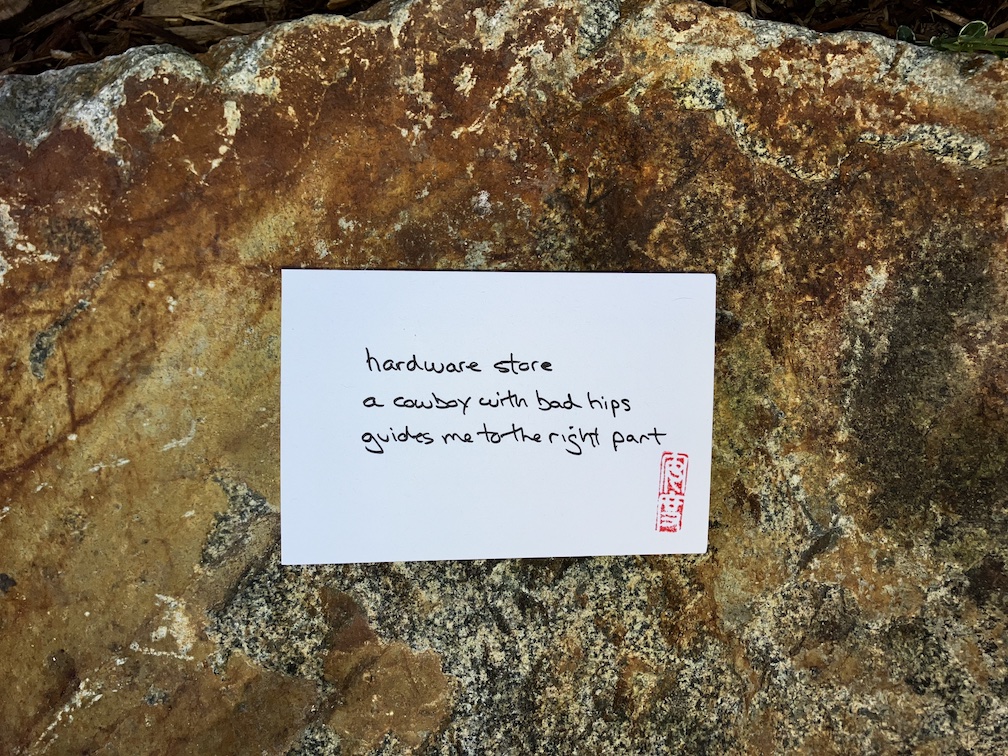 hardware store
a cowboy with bad hips
guides me to the right part